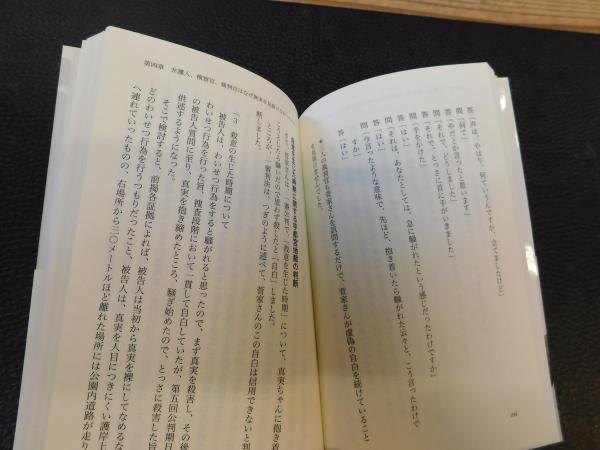 答「声は、やはり、何ていうんですか、立てましたけど」
問「何て」
答「やだとか言ったと思います」
問「それで、どうしました」
答「それで、とっさに首に手がいきました」
問「手をかけた」
答「はい」
問「それは、あなたとしては、急に騒がれたという感じだったわけで
すか」
答「はい」
問「今言ったような意味で、先ほど、抱き着いたら騒がれた云々と、こう言ったわけで
すか」
答「はい」
人の裁判官も菅家さんを訊問するだけで、菅家さんが虚偽の自白を続けていること
第四章 弁護人、検察官、裁判官はなぜ
殺意を生じた時期に関する宇都宮地裁の判断
菅家さんは、一審公判で、「殺意を生じた時期」について、真実ちゃんに抱き着
こうとしたら騒いだので思わず殺したと「自白」しました。
ところが、一審判決は、つぎのように述べて、菅家さんのこの自白は信用できないと判
断しました。
「3 殺意の生じた時期について
被告人は、わいせつ行為をすると騒がれると思ったので、まず真実を殺害し、その後
わいせつ行為を行った旨、捜査段階において一貫して自白していたが、第五回公判期日
の被告人質問に至り、真実を抱き締めたところ、騒ぎ始めたので、とっさに殺害した旨
供述するようになった。
そこで検討すると、前掲各証拠によれば、被告人は当初から真実を裸にしてなめるな
どのわいせつ行為を行うつもりだったこと、被告人は、真実を人目につきにくい護岸上
へ連れていったものの、右場所から三〇メートルほど離れた場所には公園内道路が走り